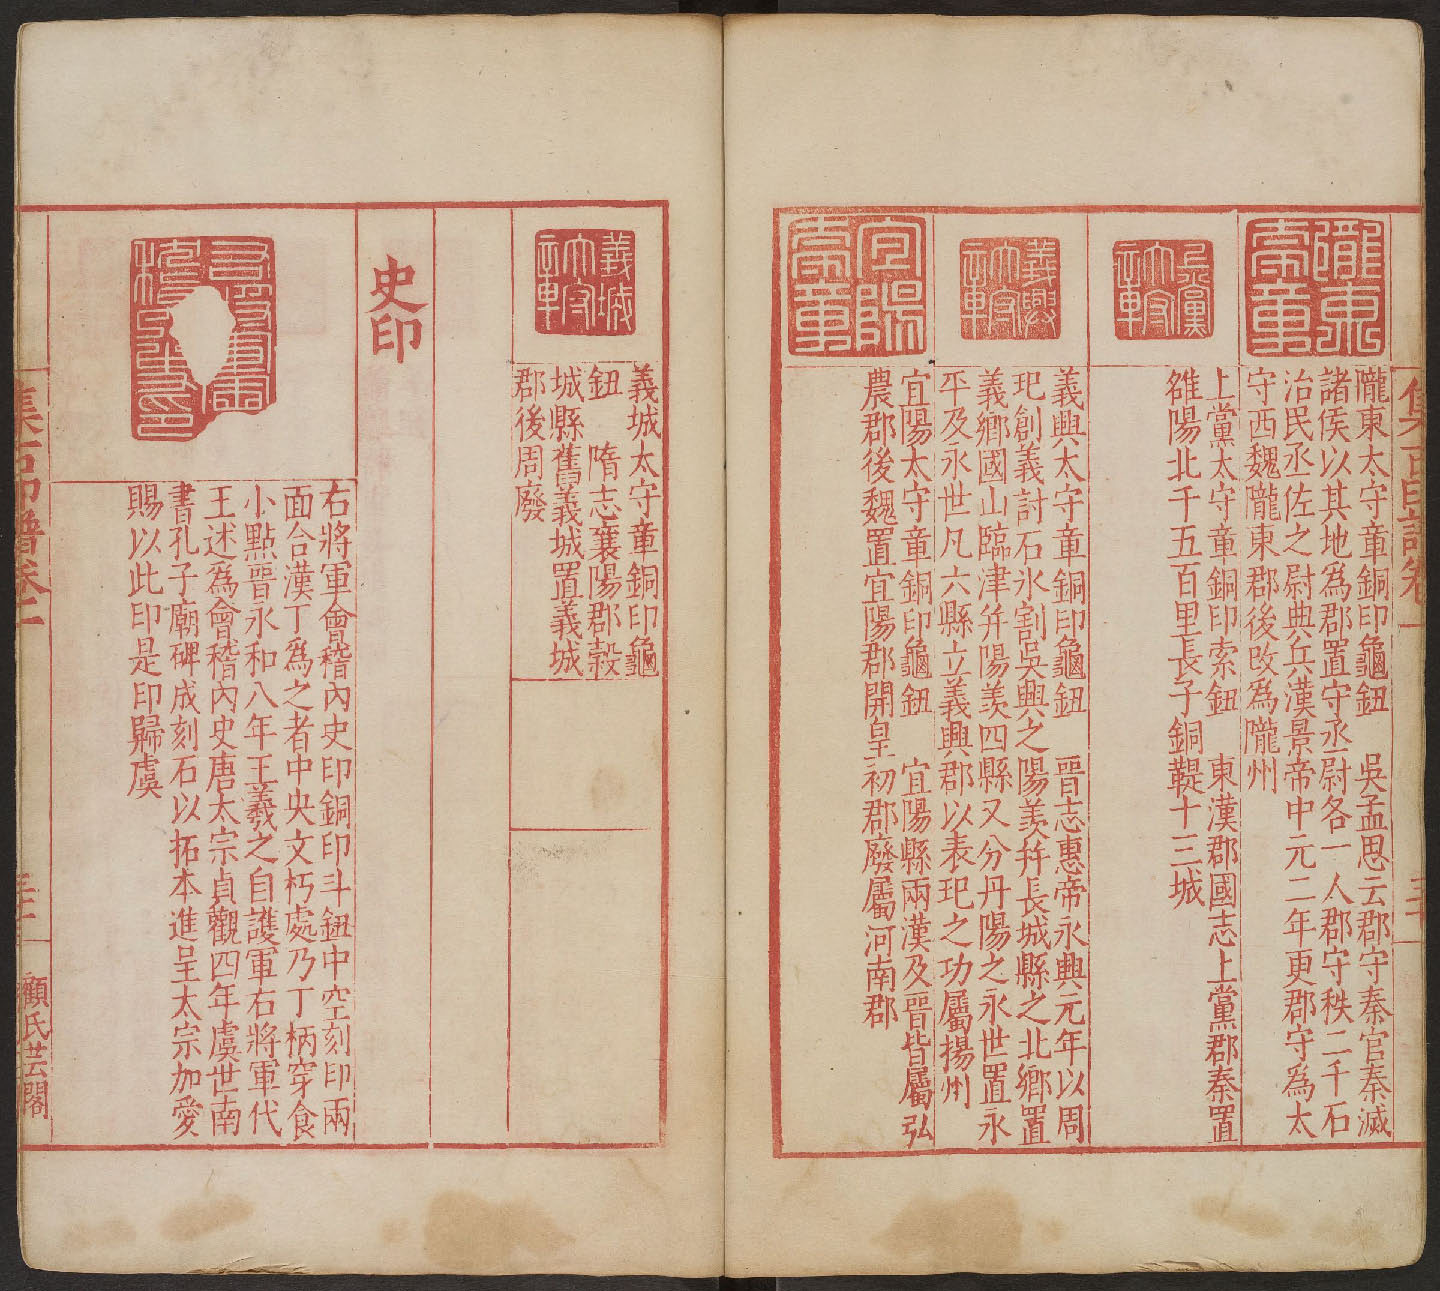 集古印譜卷二
三十
隴東太守章
隴東太守章銅印龜鈕　吳孟思云郡守秦官秦滅
諸侯以其地為郡置守丞尉各一人郡守秩二千石
治民丞佐之尉典兵漢景帝中元二年更郡守為太
守西魏隴東郡後改為隴州
上黨太守章
上黨太守章銅印索鈕　東漢郡國志上黨郡秦置
雒陽北千五百里長子銅鞮十三城
義興太守章
義興太守章銅印龜鈕　晉志惠帝永興元年以周
玘創義討石氷割吳興之陽羨并長城縣之北鄉置
義鄉國山臨津并陽羨四縣又分丹陽之永世置永
平及永世凡六縣立義興郡以表玘之功屬揚州
宜陽太守章
宜陽太守章銅印龜鈕　宜陽縣兩漢及晉皆屬弘
農郡後魏置宜陽郡開皇初郡廢屬河南郡
義城太守章
義城太守章銅印龜
鈕　隋志襄陽郡穀
城縣舊義城置義城
郡後周廢
史印
右將軍會稽內史印銅印斗鈕中空刻印兩
面合漢丁為之者中央文朽處乃丁柄穿食
小點晉永和八年王羲之自護軍右將軍代
王述為會稽內史唐太宗貞觀四年虞世南
書孔子廟碑成刻石以拓本進呈太宗加愛
賜以此印是印歸虞
集古印譜卷二
三十一
顧氏芸閣